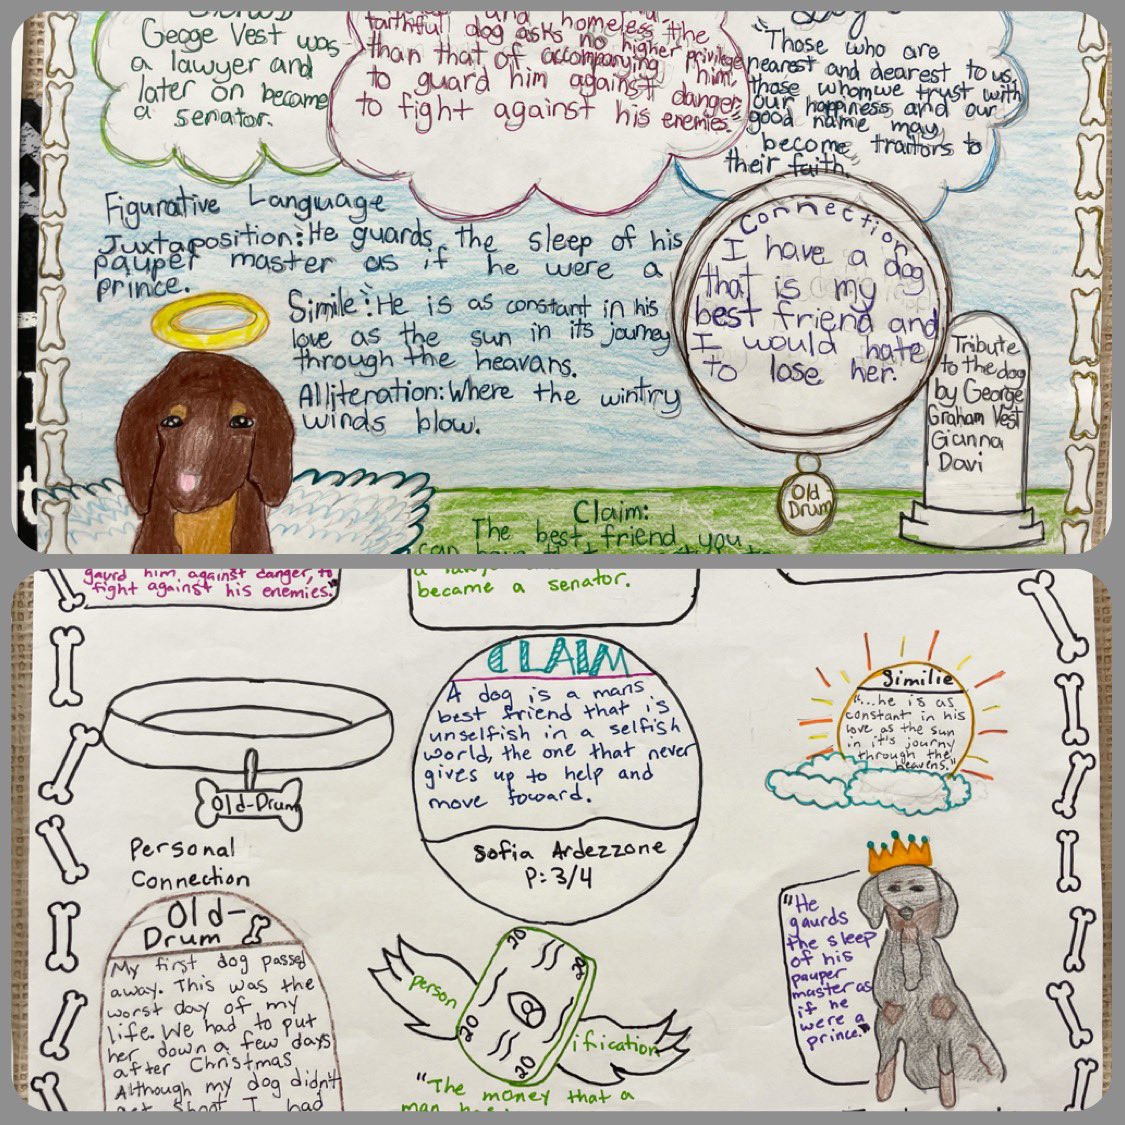 George Vest was
a lawyer and
later on became
a senator.
and homeless the
faithful dog asks no higher privilege
than that of accompanying him,
to guard him against danger,
to fight against his enemies."
"Those who are
nearest and dearest to us,
those whom we trust with
our happiness and our
good name may
become traitors to
their faith.
Figurative Language
Juxtaposition: He guards the sleep of his
pauper master as if he were a
prince.
Simile: He is as constant in his
love as the sun in its journey
through the heavans.
Alliteration: Where the wintry
winds blow.
Connection
I have a dog
that is my
best friend and
I would hate
to lose her.
Old
Drum
Tribute
to the dog
by George
Graham Vest
Gianna
Davi
Claim:
The best friend you
gaurd him against danger, to
fight against his enemies."
became a senator.
CLAIM
A dog is a mans
best friend that is
unselfish in a selfish
world, the one that never
gives up to help and
move foward.
Sofia Ardezzone
P: 3/4
Similie
"...he is as
constant in his
love as the sun
in it's journy
through the
heavens."
Old-Drum
Personal
Connection
Old-
Drum
My first dog passed
away. This was the
worst day of my
life. We had to put
her down a few days
after Christmas
Although my dog didn't
get shot I had
person
ification
20
20
20
20
"The money that a
man
"He
gaurds
the sleep
of his
pauper
master as
if he
were a
prince."